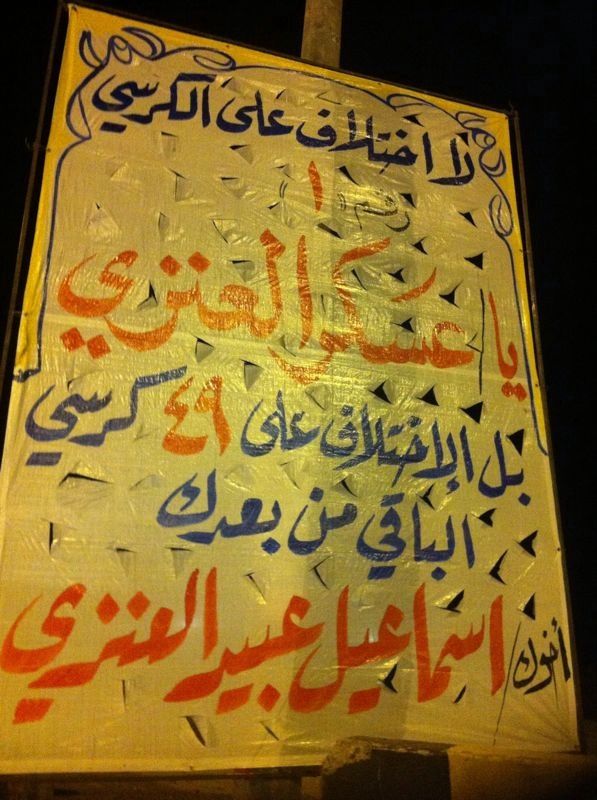 لا اختلاف على الكرسي
رقم (١)
يا/ عسكر العنزي
بل الإختلاف على ٤٩ كرسي
الباقي من بعدك
أخوك/ اسماعيل عبيد العنزي